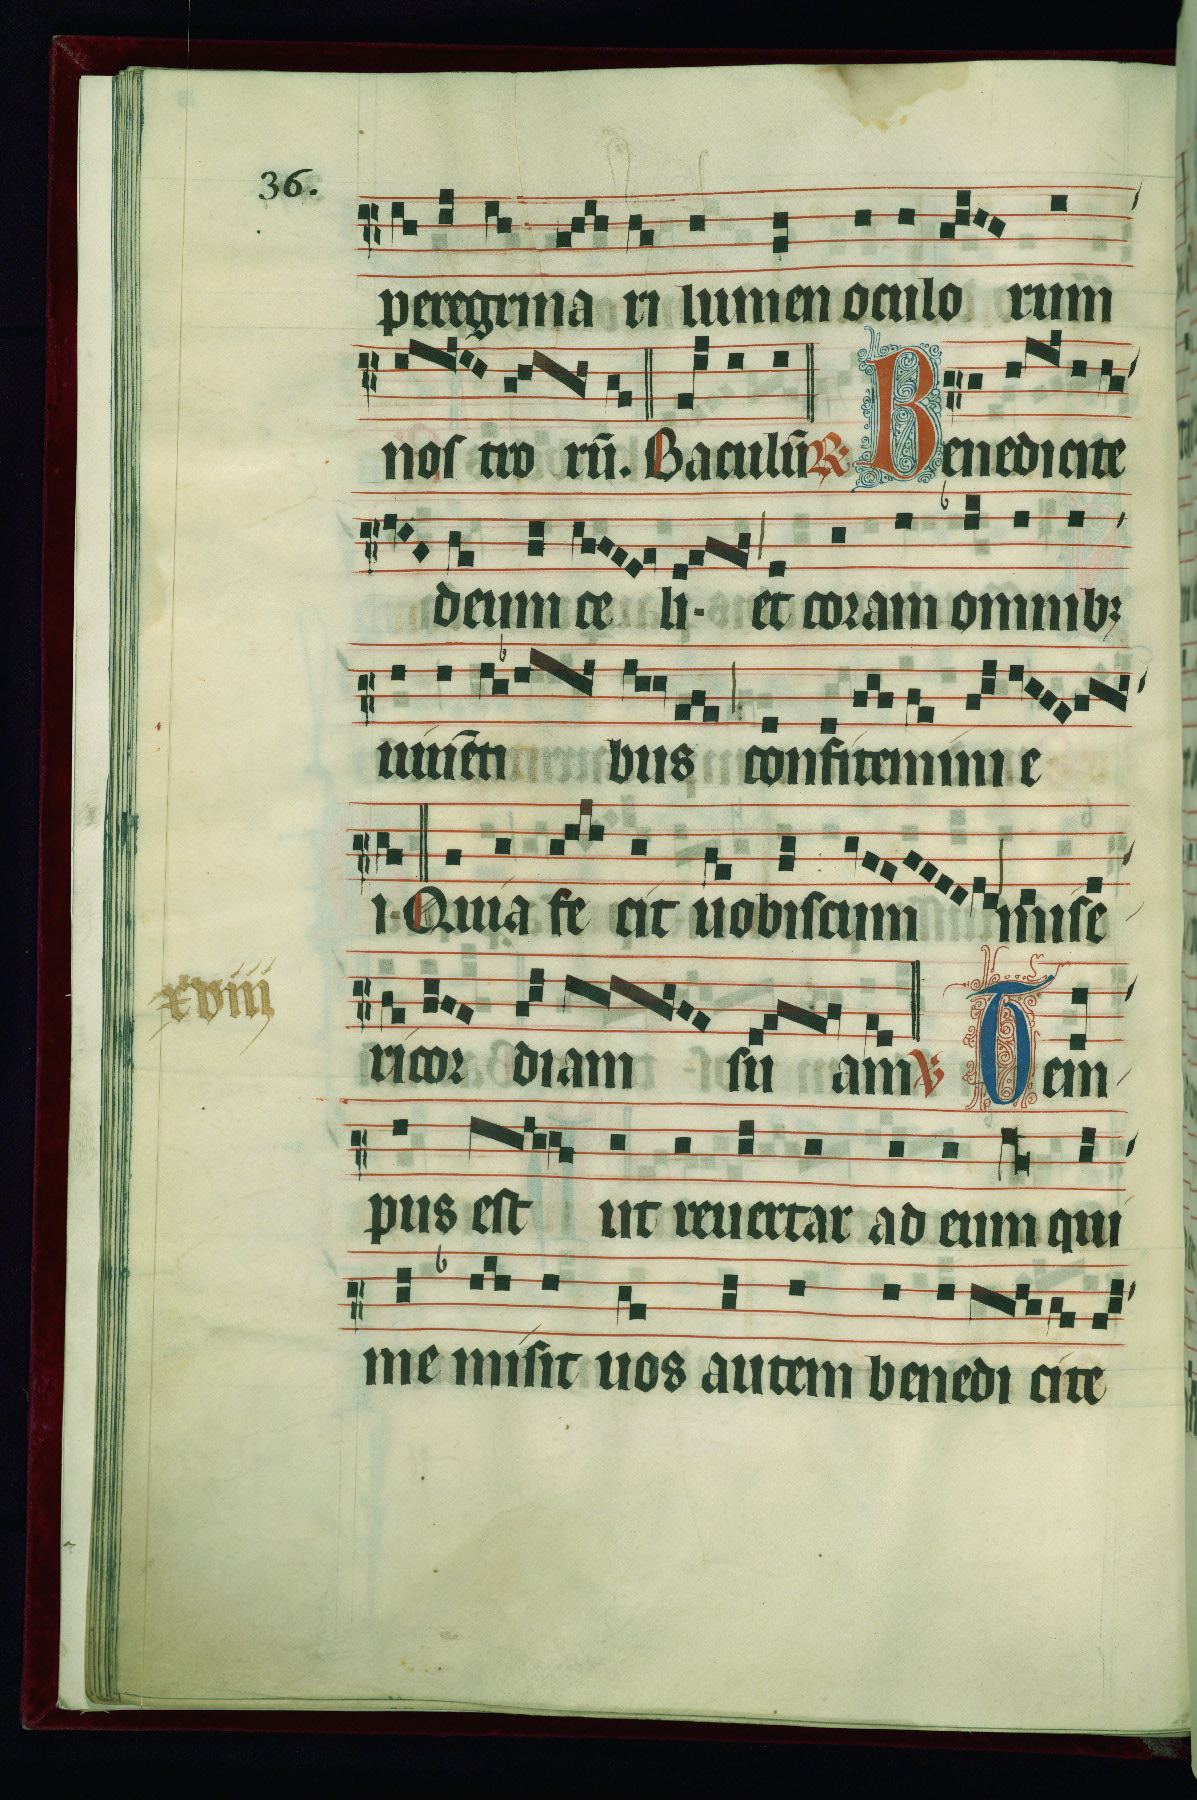 36.
peregrina ri lumen oculo rum
nos tro rū. Baculū R Benedicite
deum ce li. et coram omnibꝫ
uiuēti bus confitemini e
i. Quia fe cit uobiscum mise
xviij
ricor diam su am V Tem
pus est ut reuertar ad eum qui
me misit uos autem benedi cite